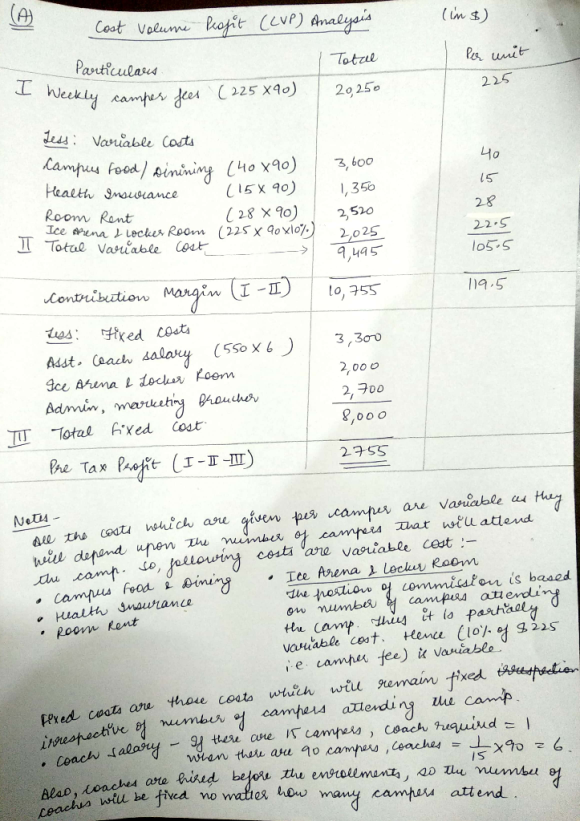 (A) Cost Volume Profit (CVP) Analysis (in $)
Particulars Total Per unit
I Weekly camper fees (225 x 90) 20,250 225
Less: Variable Costs
Campus Food/Dinining (40 x 90) 3,600 40
Health Insurance (15 x 90) 1,350 15
Room Rent (28 x 90) 2,520 28
Ice Arena & Locker Room (225 x 90 x 10%) 2,025 22.5
II Total Variable Cost → 9,495 105.5
Contribution Margin (I - II) 10,755 119.5
Less: Fixed Costs
Asst. Coach salary (550 x 6) 3,300
Ice Arena & Locker Room 2,000
Admin, marketing Broucher 2,700
III Total Fixed Cost 8,000
Pre Tax Profit (I - II - III) 2755
Notes -
All the costs which are given per camper are variable as they
will depend upon the number of campers that will attend
the camp. So, following costs are variable cost :-
• Campus Food & Dining
• Health Insurance
• Room Rent
• Ice Arena & Locker Room
The portion of commission is based
on number of campers attending
the camp. Thus it is partially
variable cost. Hence (10% of $225
i.e camper fee) is variable.
Fixed costs are those costs which will remain fixed irrespection
irrespective of number of campers attending the camp.
• Coach Salary - If there are 15 campers, coach required = 1
when there are 90 campers, coaches = 1/15 x 90 = 6.
Also, coaches are hired before the enrollments, so the number of
coaches will be fixed no matter how many campers attend.